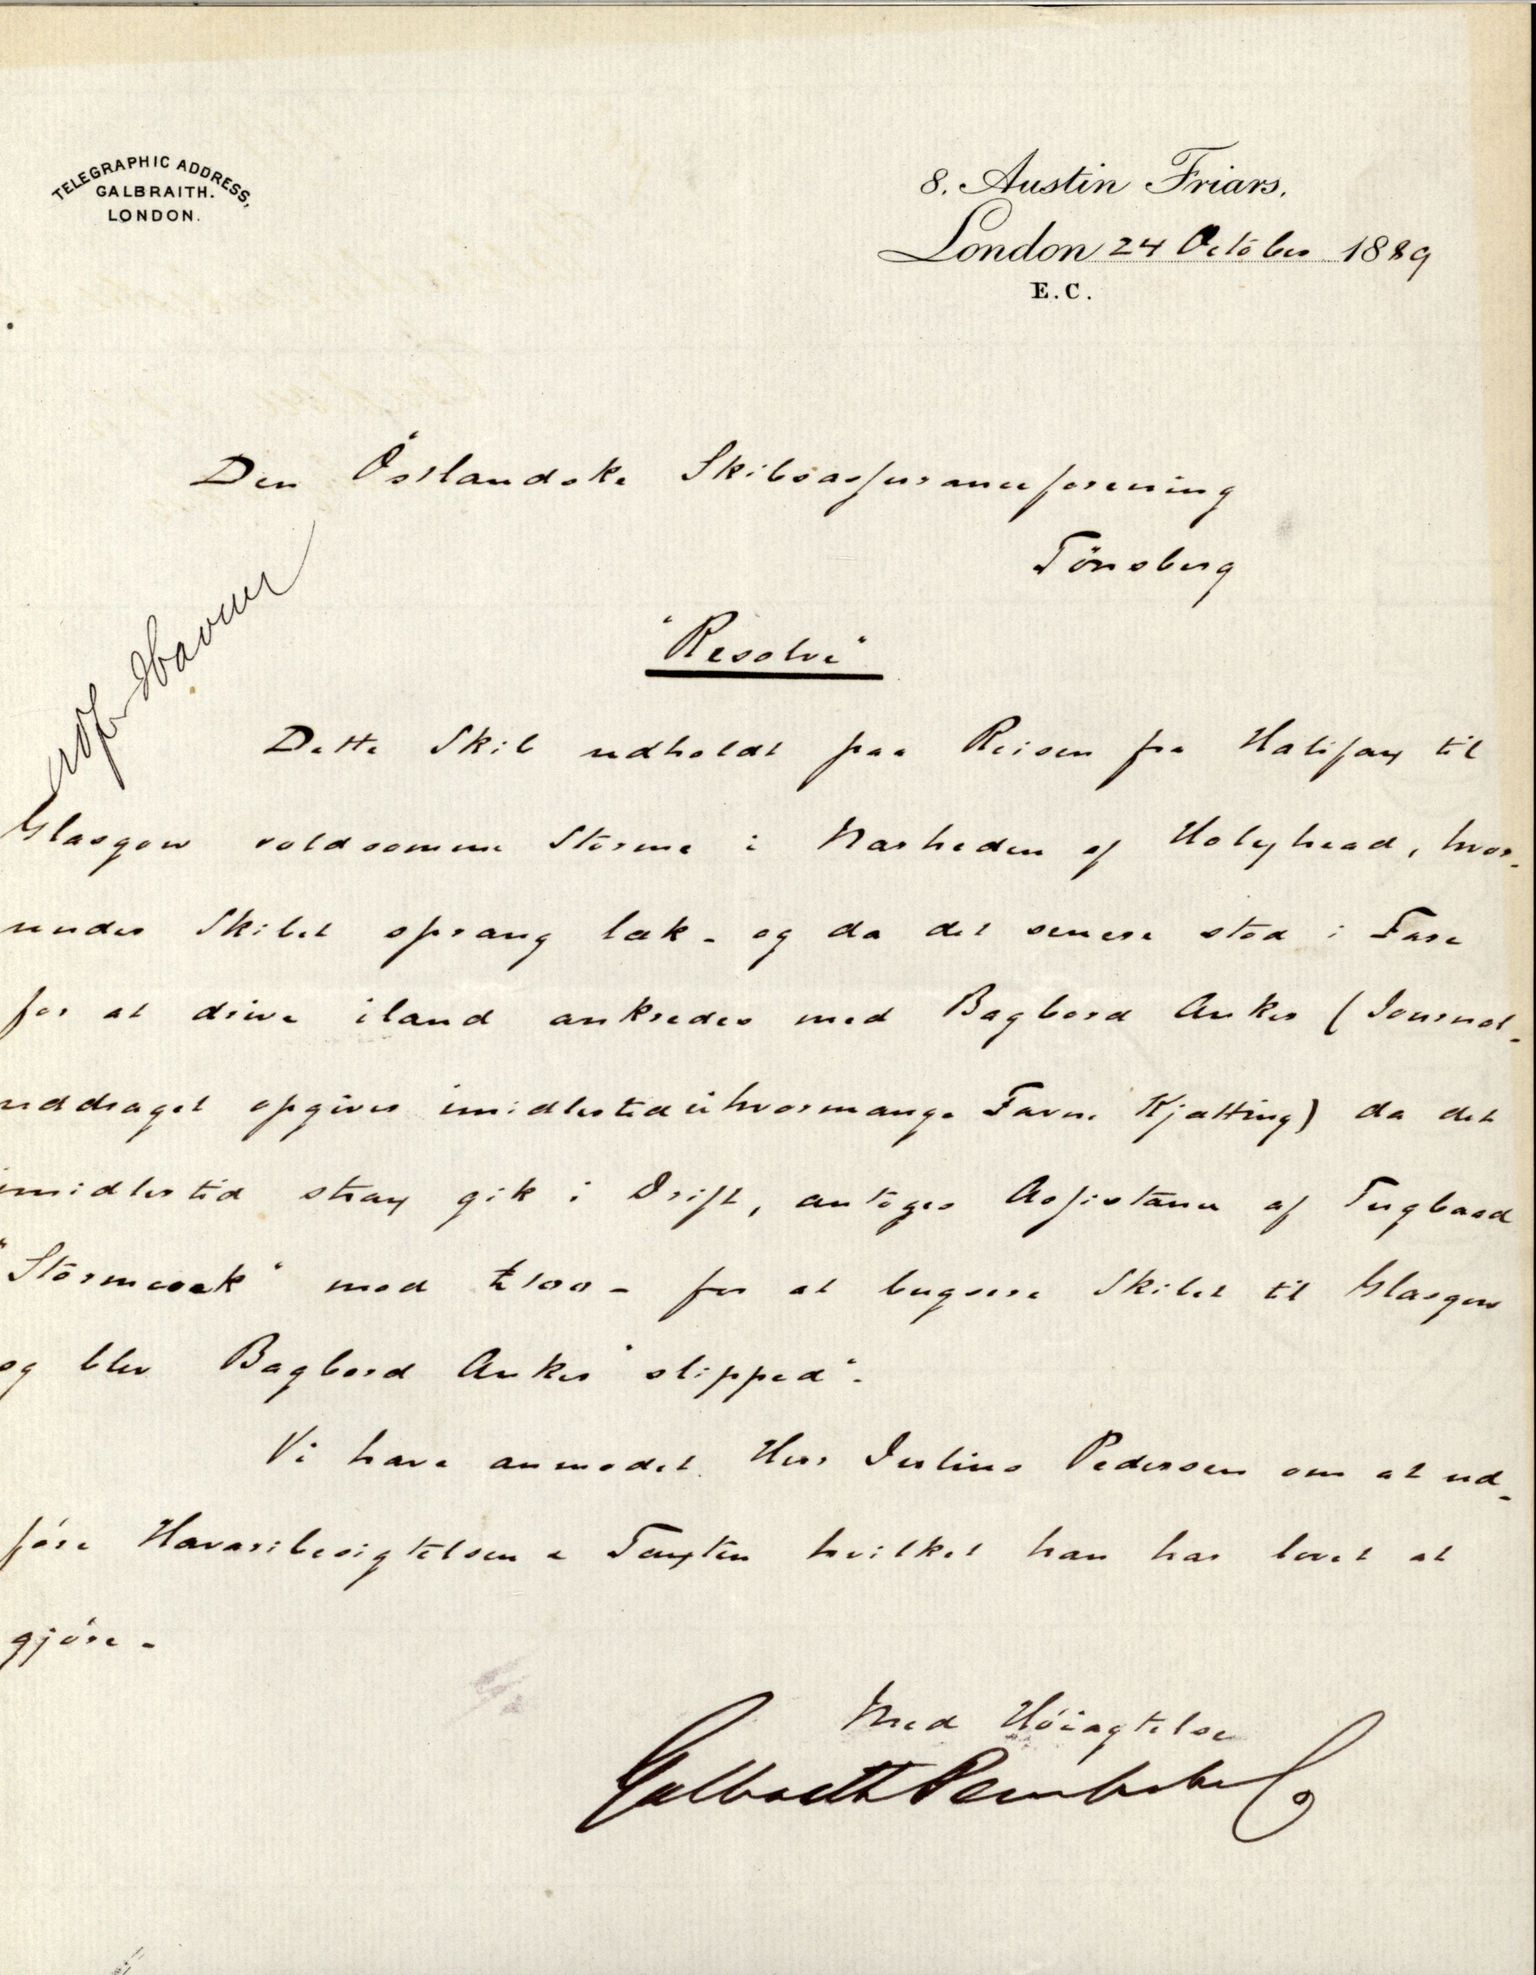 TELEGRAPHIC ADDRESS,
GALBRAITH.
LONDON.
8. Austin Friars.
London 24 October 1889
E.C.
Den Östlandske Skibsassuranceforening
Tönsberg
"Resolve"
Dette Skib udholdt paa Reisen fra Halifax til
Glasgow voldsomme Storme i Nærheden af Holyhead, hvor-
under Skibet sprang læk - og da det senere stod i Fare
for at drive iland ankredes med Bagbord Anker (Journal-
uddraget opgiver imidlertid ei hvormange Favne Kjætting) da det
imidlertid strax gik i Drift, antoges Assistance af Tugbaad
"Stormcock" mod £100 - for at bugsere Skibet til Glasgow
og blev Bagbord Anker "slipped".
Vi have anmodet Herr Julius Pedersen om at ud-
före Havaribesigtelsen & Taxten hvilket han har lovet at
gjöre -
Med Höiagtelse
Galbraith Pembroke & Co